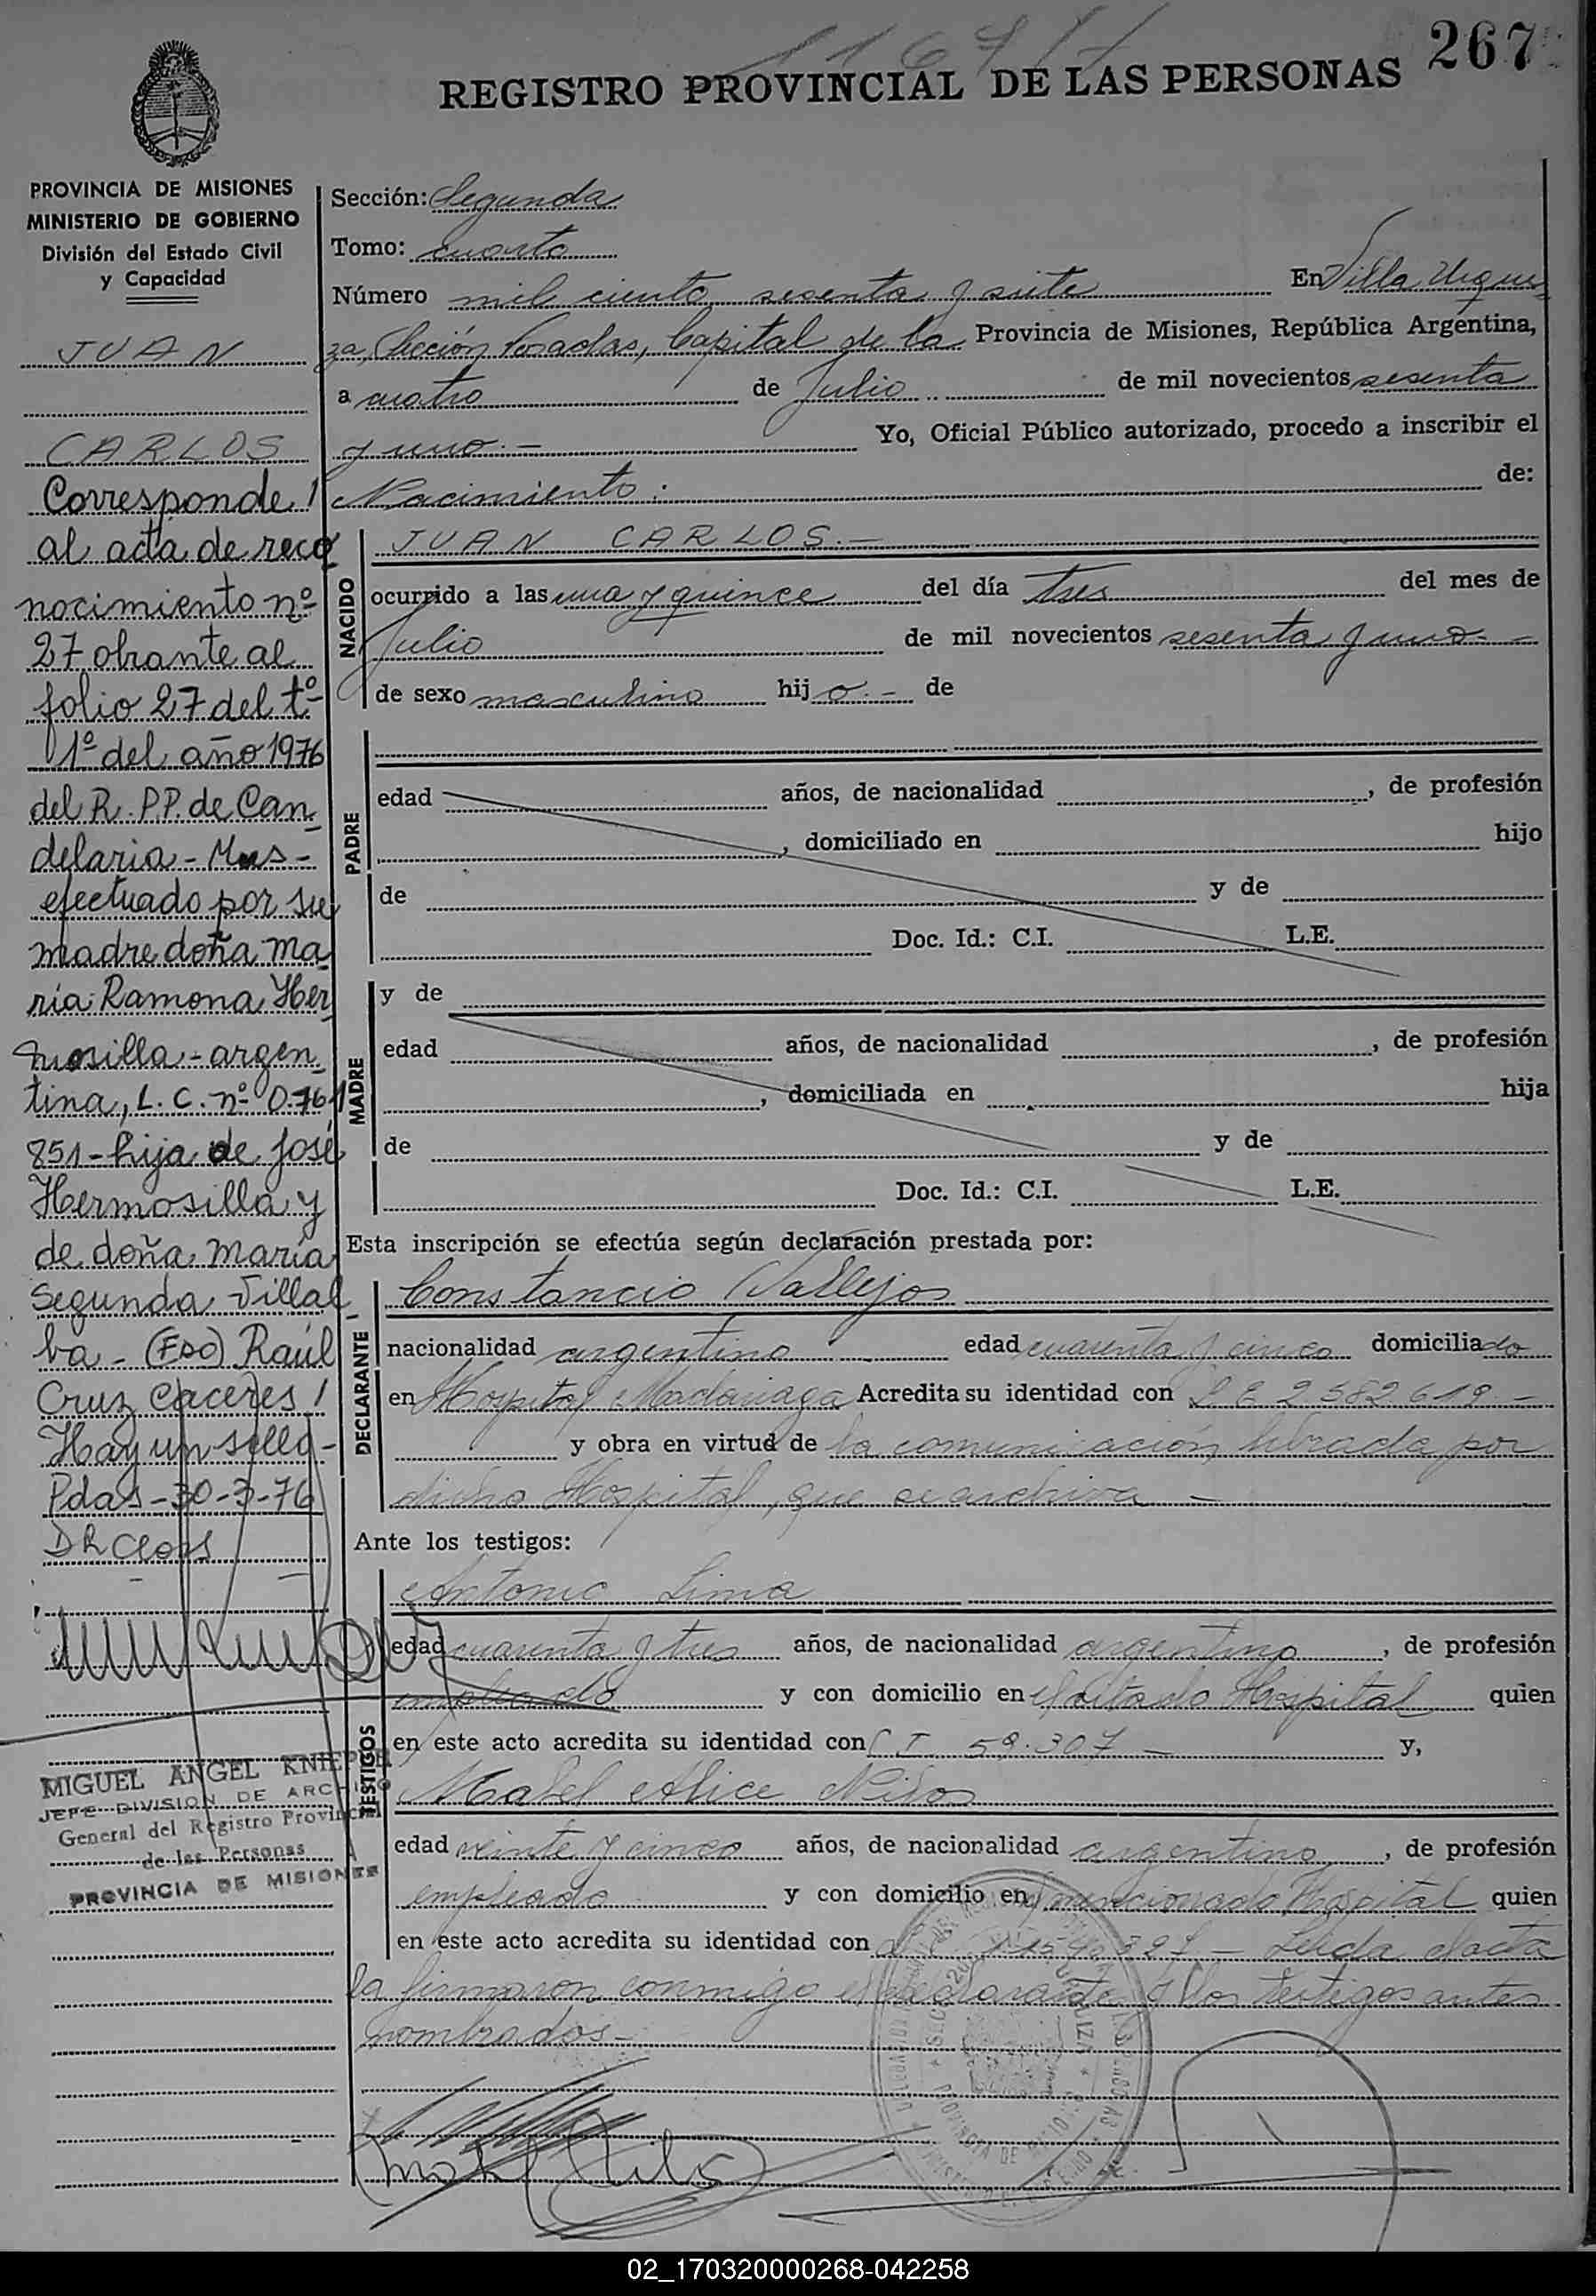 267
REGISTRO PROVINCIAL DE LAS PERSONAS
PROVINCIA DE MISIONES
MINISTERIO DE GOBIERNO
División del Estado Civil
y Capacidad
JUAN
CARLOS
Corresponde
al acta de reco
nocimiento nº
27 obrante al
folio 27 del tº
1º del año 1976
del R.P.P. de Can
delaria - Mns -
efectuado por su
madre doña Ma
ría Ramona Her
mosilla - argen
tina, L.C. nº 0.761
851 - hija de José
Hermosilla y
de doña María
Segunda Villal
ba - (Fdo) Raúl
Cruz Caceres /
Hay un sello -
Pdas - 30-3-76
MIGUEL ANGEL
JEFE DIVISION DE ARCHIVO
General del Registro Provincial
de las Personas
PROVINCIA DE MISIONES
Sección: Segunda
Tomo: cuarto
Número mil ciento sesenta y siete En Villa Urqui
za, Sección Posadas, Capital de la Provincia de Misiones, República Argentina,
a cuatro de Julio de mil novecientos sesenta
y uno.- Yo, Oficial Público autorizado, procedo a inscribir el
Nacimiento: de:
NACIDO
JUAN CARLOS.-
ocurrido a las una y quince del día tres del mes de
Julio de mil novecientos sesenta y uno -
de sexo masculino hijo.- de
PADRE
edad años, de nacionalidad , de profesión
, domiciliado en hijo
de y de
Doc. Id.: C.I. L.E.
MADRE
y de
edad años, de nacionalidad , de profesión
, domiciliada en hija
de y de
Doc. Id.: C.I. L.E.
Esta inscripción se efectúa según declaración prestada por:
DECLARANTE
Constancio Vallejos
nacionalidad argentino edad cuarenta y cinco domiciliado
en Hospital Madariaga Acredita su identidad con L E 2582619.-
y obra en virtud de la comunicación librada por
dicho Hospital, que se archiva -
Ante los testigos:
TESTIGOS
Antonio Lima
edad cuarenta y tres años, de nacionalidad argentino, de profesión
empleado y con domicilio en el citado Hospital quien
en este acto acredita su identidad con C I. 59.307 - y,
Mabel Alice
edad veinte y cinco años, de nacionalidad argentina, de profesión
empleada y con domicilio en el mencionado Hospital quien
en este acto acredita su identidad con - Leída el acta
la firmaron conmigo el declarante y los testigos antes
nombrados -
02_170320000268-042258